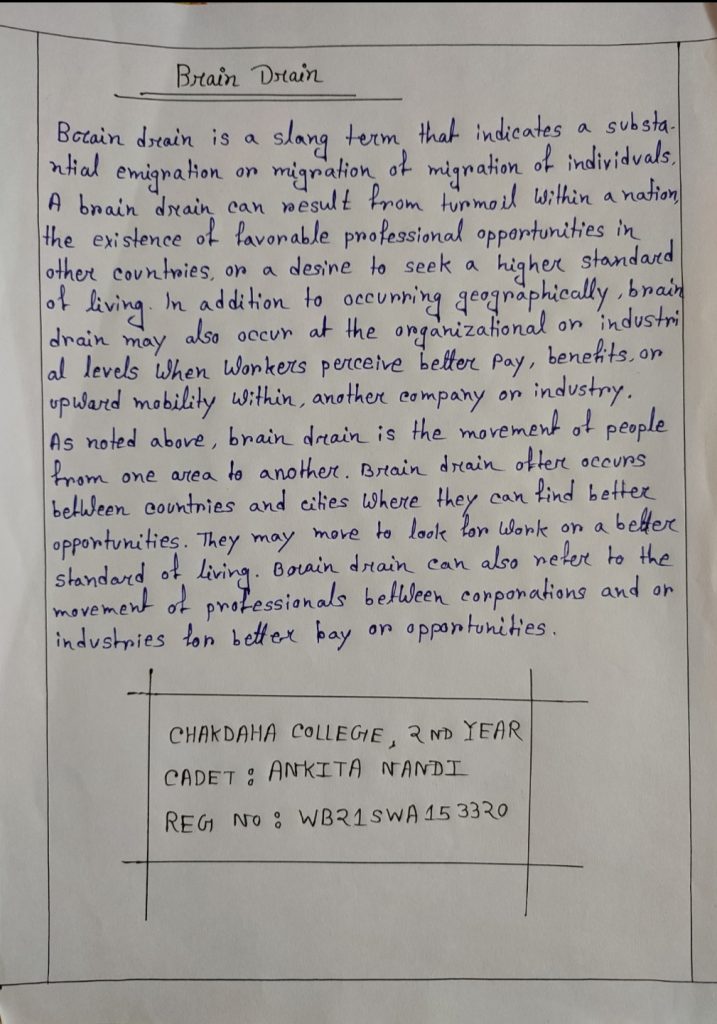 Brain Drain
Brain drain is a slang term that indicates a substa-
ntial emigration or migration of migration of individuals.
A brain drain can result from turmoil within a nation,
the existence of favorable professional opportunities in
other countries, or a desire to seek a higher standard
of living. In addition to occurring geographically, brain
drain may also occur at the organizational or industri
al levels when workers perceive better pay, benefits, or
upward mobility within, another company or industry.
As noted above, brain drain is the movement of people
from one area to another. Brain drain ofter occurs
between countries and cities where they can find better
opportunities. They may move to look for work or a better
standard of living. Brain drain can also refer to the
movement of professionals between corporations and or
industries for better pay or opportunities.
CHAKDAHA COLLEGE, 2ND YEAR
CADET : ANKITA NANDI
REG NO : WB21SWA153320